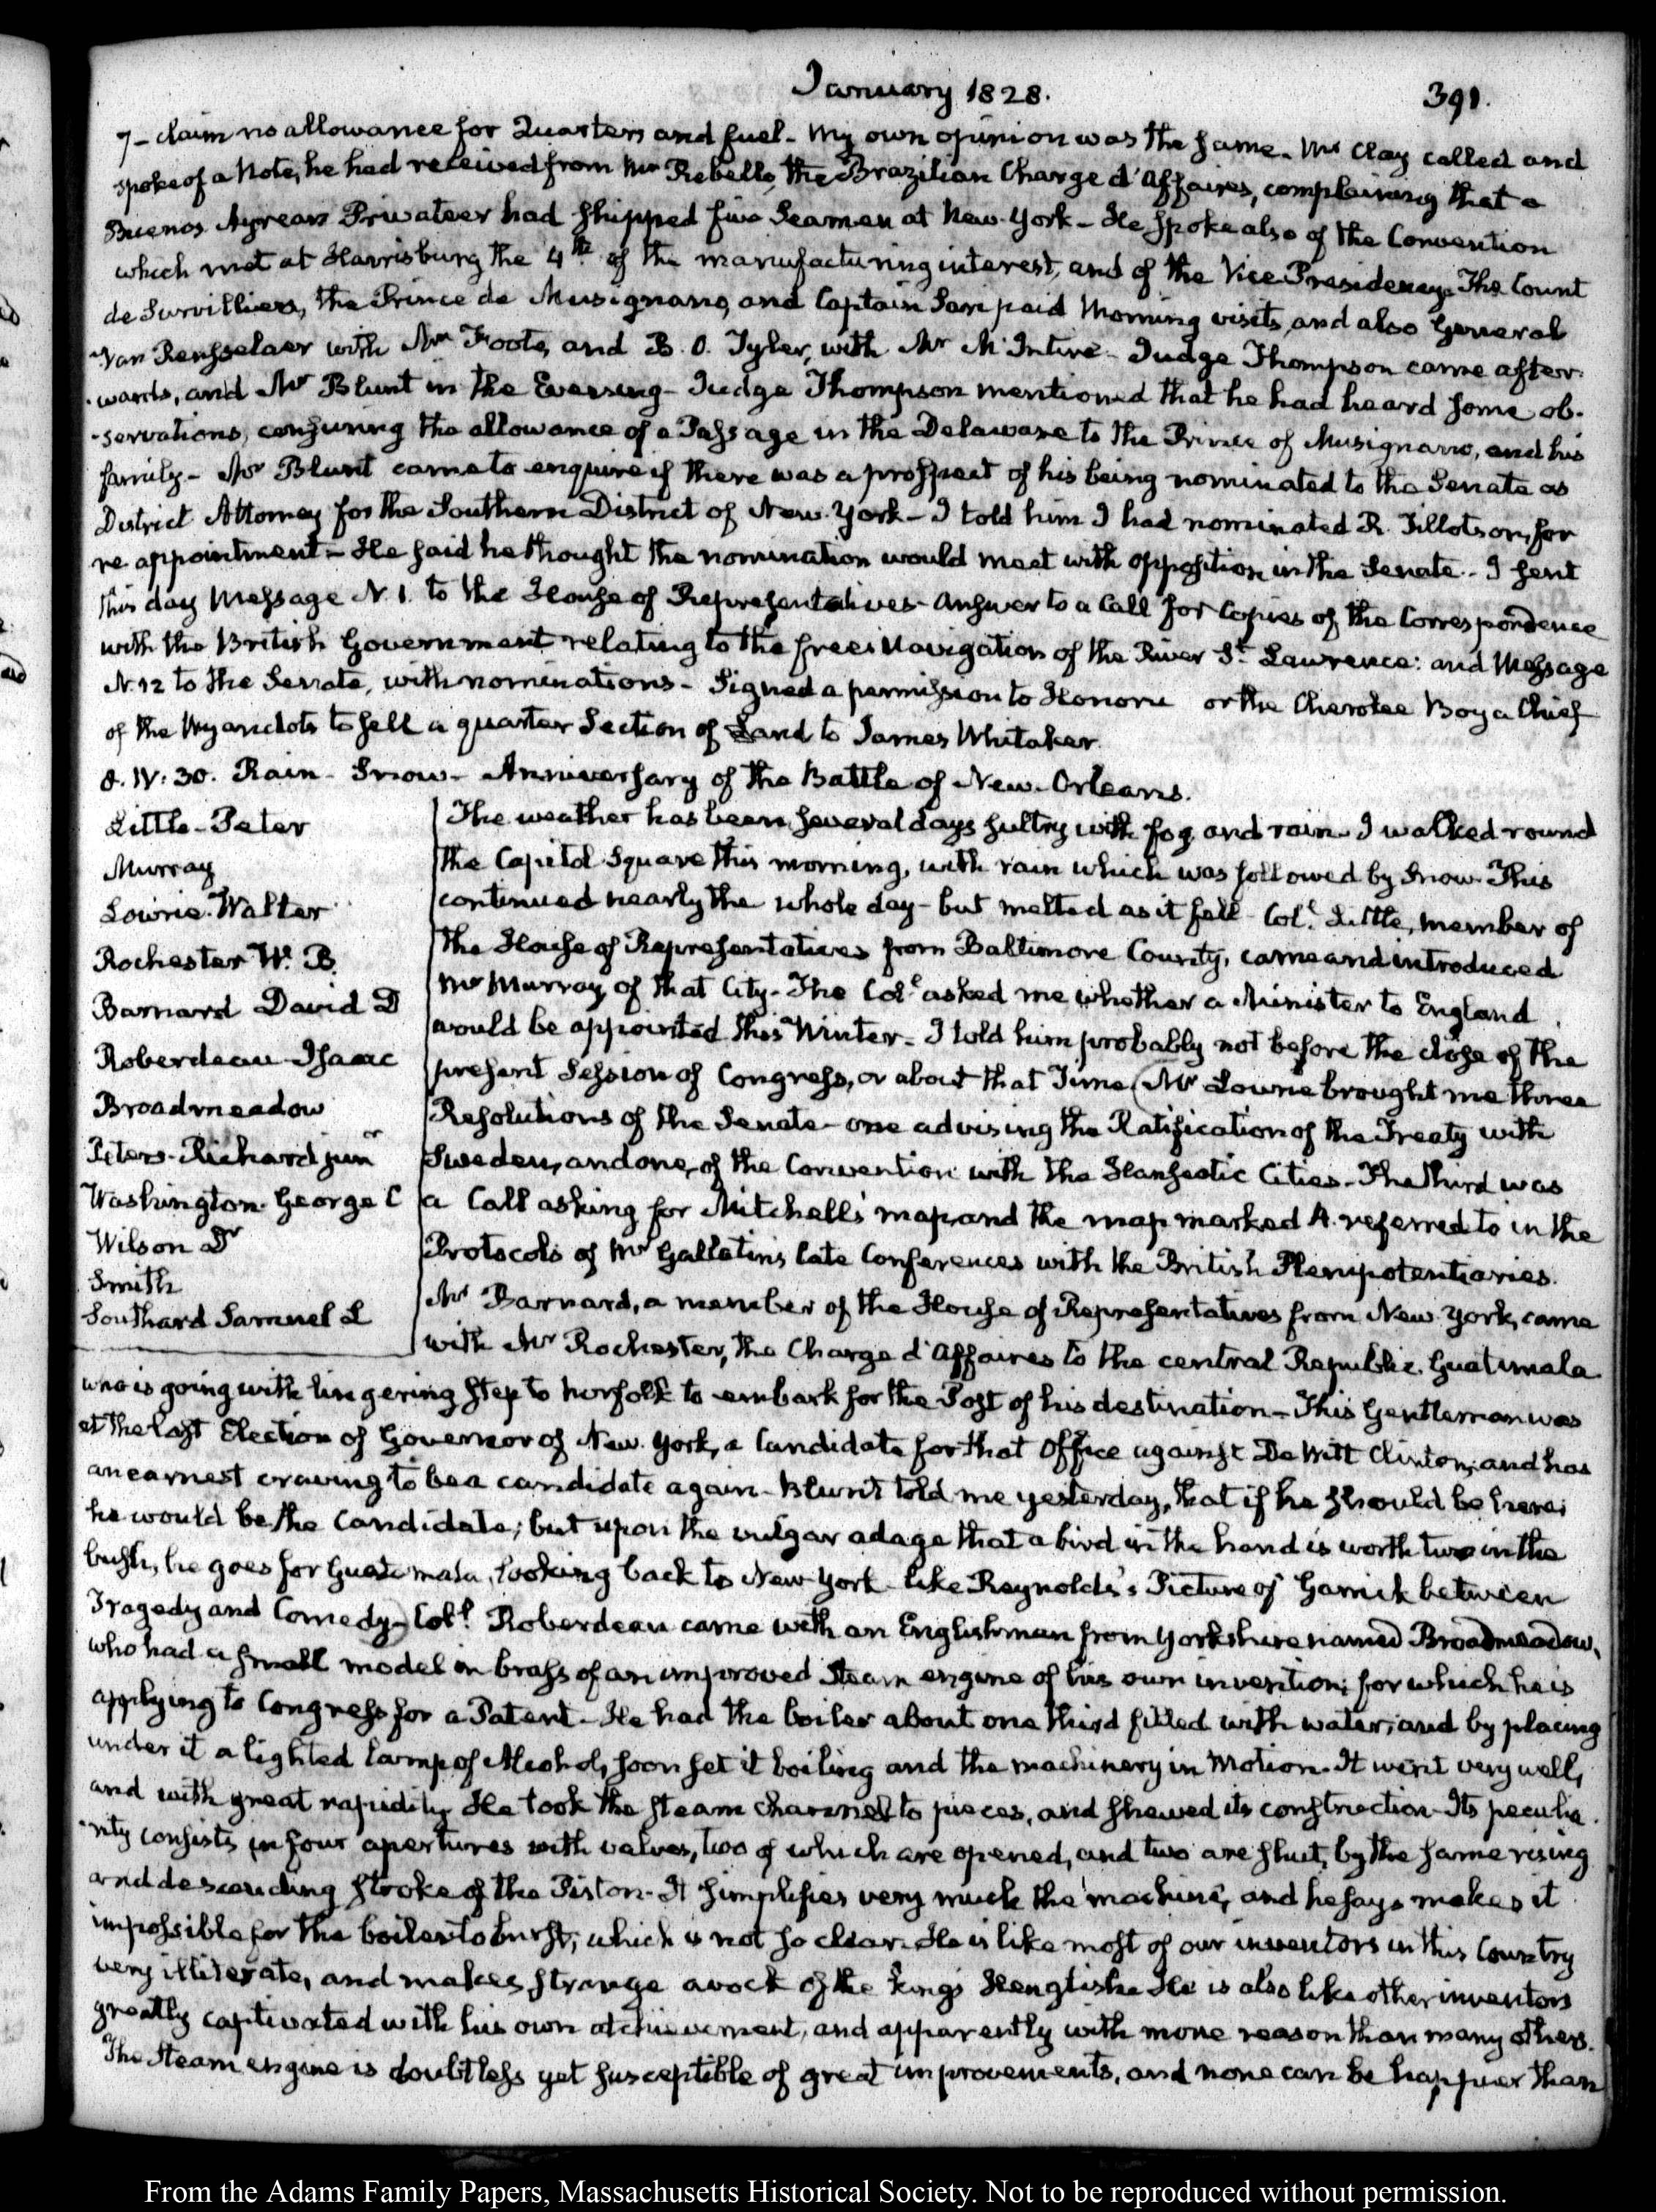 January 1828.
391.
7- claim no allowance for Quarters and fuel- My own opinion was the same. Mr Clay called and
spoke of a Note, he had received from Mr Rebello, the Brazilian Charge d'Affaires, complaining that a
Buenos Ayrean Privateer had shipped five Seamen at New-York- He spoke also of the Convention
which met at Harrisburg the 4th. of the manufacturing interest, and of the Vice Presidency. The Count
de Survilliers, the Prince de Musignano, and Captain Sari paid Morning visits, and also General
Van Rensselaer with Mr Foote, and B. O. Tyler, with Mr McIntire- Judge Thompson came after-
-wards, and Mr Blunt in the Evening- Judge Thompson mentioned that he had heard some ob-
-servations, censuring the allowance of a Passage in the Delaware to the Prince of Musignano, and his
family- Mr Blunt came to enquire if there was a prospect of his being nominated to the Senate as
District Attorney for the Southern District of New-York- I told him I had nominated R. Tillotson, for
re appointment- He said he thought the nomination would meet with opposition in the Senate- I sent
this day Message N. 1. to the House of Representatives- Answer to a Call for Copies of the Correspondence
with the British Government relating to the free Navigation of the River St. Lawrence: and Message
N. 12 to the Senate, with nominations- Signed a permission to Honoru or the Cherokee Boy a Chief
of the Wyandots to sell a quarter Section of Land to James Whitaker.
8. IV: 30. Rain- Snow- Anniversary of the Battle of New-Orleans.
Little- Peter
Murray
Lowrie. Walter
Rochester W. B.
Barnard David D
Roberdeau- Isaac
Broadmeadow
Peters- Richard junr
Washington- George C
Wilson Dr
Smith
Southard Samuel L
The weather has been several days sultry with fog, and rain- I walked round
the Capitol Square this morning, with rain which was followed by Snow. This
continued nearly the whole day- but melted as it fell- Coll. Little, member of
the House of Representatives from Baltimore County, came and introduced
Mr Murray of that City- The Coll. asked me whether a Minister to England
would be appointed this Winter- I told him probably not before the close of the
present Session of Congress, or about that Time (Mr Lowrie brought me three
Resolutions of the Senate- one advising the Ratification of the Treaty with
Sweden, and one, of the Convention with the Hanseatic Cities- The Third was
a Call asking for Mitchell's map and the map marked A. referred to in the
Protocols of Mr Gallatin's late Conferences with the British Plenipotentiaries.
Mr Barnard, a member of the House of Representatives from New York, came
with Mr Rochester, the Charge d'Affaires to the central Republic. Guatimala
who is going with lingering step to Norfolk to embark for the Post of his destination- This Gentleman was
at the last Election of Governor of New-York, a Candidate for that Office against De Witt Clinton; and has
an earnest craving to be a candidate again- Blunt told me yesterday, that if he should be here;
he would be the Candidate; but upon the vulgar adage that a bird in the hand is worth two in the
bush, he goes for Guatimala, looking back to New-York- like Reynolds's Picture of Garrick between
Tragedy and Comedy) Coll. Roberdeau came with an Englishman from Yorkshire named Broadmeadow,
who had a small model in brass of an improved Steam engine of his own invention; for which he is
applying to Congress for a Patent- He had the boiler about one third filled with water, and by placing
under it a lighted lamp of Alcohol, soon set it boiling and the machinery in Motion. It went very well,
and with great rapidity. He took the steam channel to pieces, and shewed its construction- Its peculia-
-rity consists, in four apertures with valves, two of which are opened, and two are shut, by the same rising
and descending stroke of the Piston- It simplifies very much the machine, and he says makes it
impossible for the boiler to burst; which is not so clear. He is like most of our inventors in this Country
very illiterate, and makes strange avock of the King's Henglish. He is also like other inventors
greatly captivated with his own atchievement, and apparently with more reason than many others.
The Steam engine is doubtless yet susceptible of great improvements, and none can be happier than
From the Adams Family Papers, Massachusetts Historical Society. Not to be reproduced without permission.